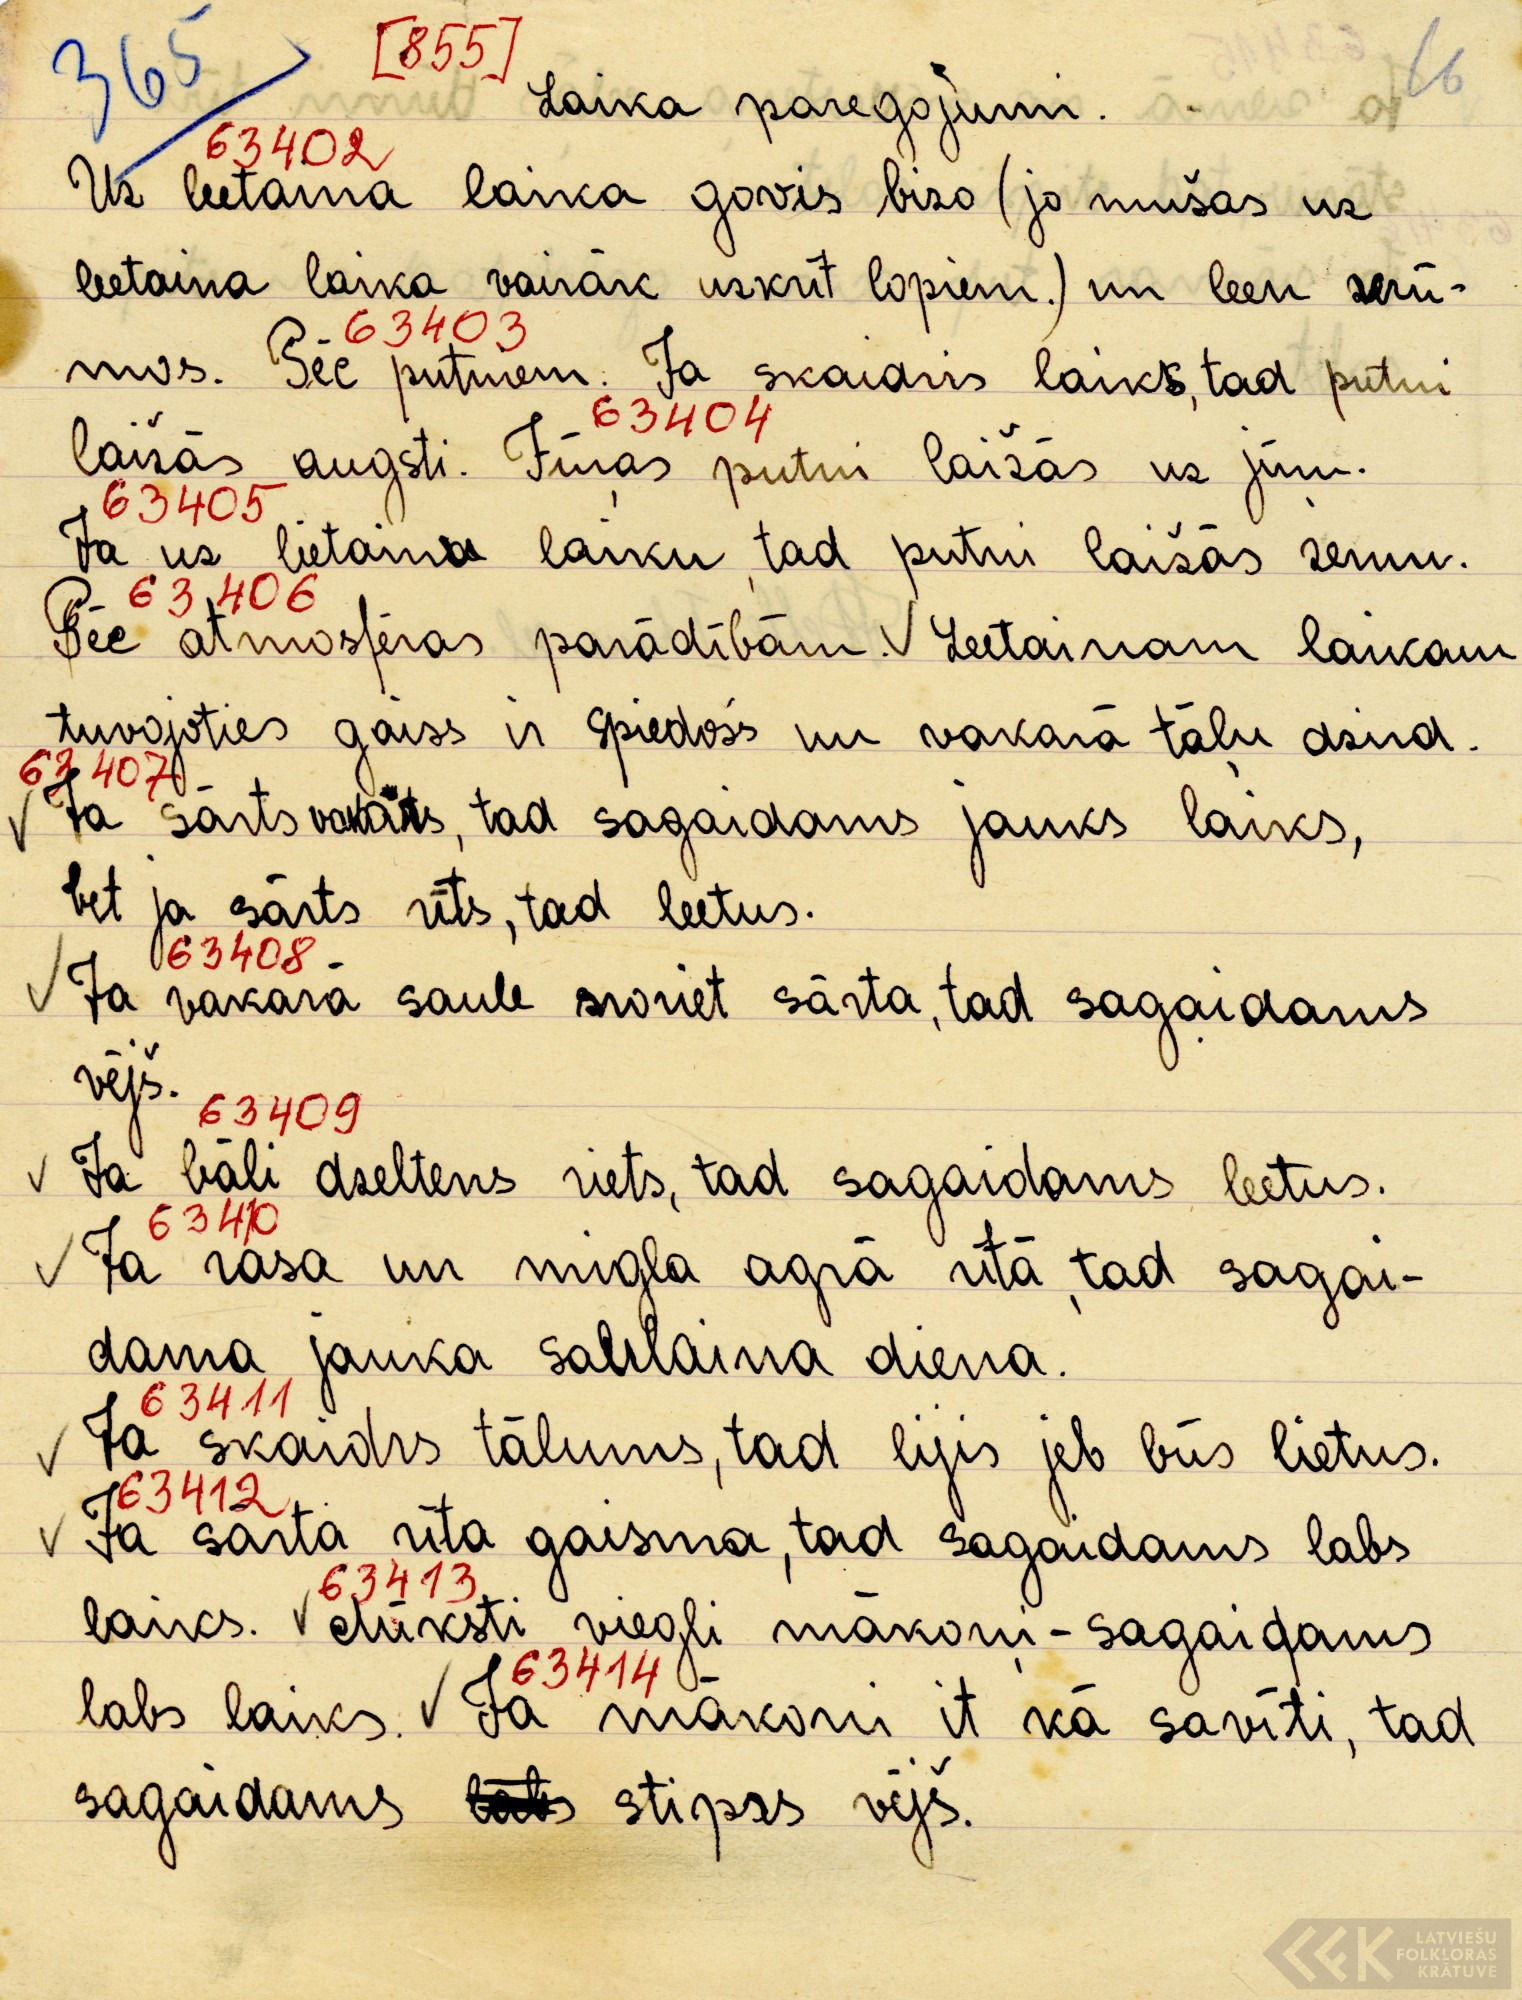 365 [855] 16
Laika paregojumi.
63402
Uz leetaina laika govis bizo (jo mušas uz
leetaina laika vairāk uzkrīt lopiem.) un leen
63403
mos. Pēc putniem. Ja skaidris laiks, tad putni
63404
laižās augsti. Jūŗas putni laižās uz jūŗu.
63405
Ja uz lietainu laiku, tad putni laižās zemu.
63406
Pēc atmosfēras parādībām. ✓ Leetainam laikam
tuvojoties gaiss ir spiedošs un vakarā tāļu dzird.
63407
✓ Ja sārts vakars, tad sagaidams jauks laiks,
bet ja sārts rīts, tad leetus.
63408
✓ Ja vakarā saule noriet sārta, tad sagaidams
vējš.
63409
✓ Ja bāli dzeltens riets, tad sagaidams leetus.
63410
✓ Ja rasa un migla agrā rītā, tad sagai-
dama jauka saulaina diena.
63411
✓ Ja skaidrs tālums, tad lijis jeb būs lietus.
63412
✓ Ja sārta rīta gaisma, tad sagaidams labs
63413
laiks. ✓ Mīksti viegli mākoņi - sagaidams
63414
labs laiks. ✓ Ja mākoni it kā savīti, tad
sagaidams stiprs vējš.
LATVIEŠU
FOLKLORAS
KRĀTUVE